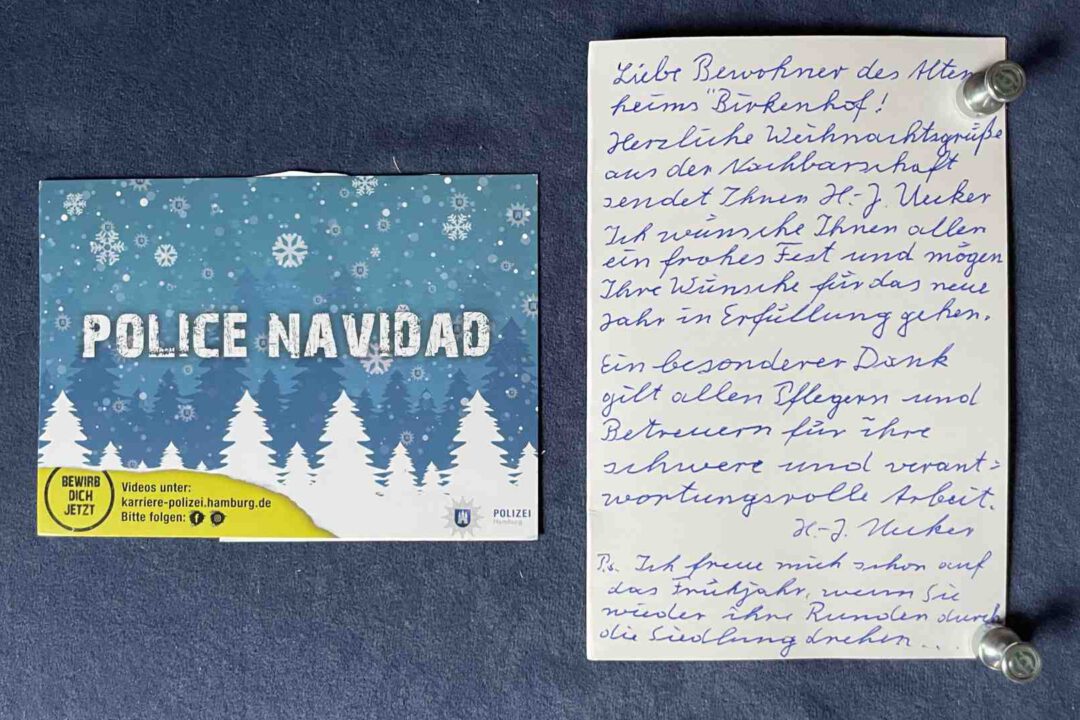 POLICE NAVIDAD
BEWIRB
DICH
JETZT
Videos unter:
karriere-polizei.hamburg.de
Bitte folgen:
POLIZEI
Hamburg
Liebe Bewohner des Alten
heims "Birkenhof!
Herzliche Weihnachtsgrüße
aus der Nachbarschaft
sendet Ihnen H.-J. Uecker
Ich wünsche Ihnen allen
ein frohes Fest und mögen
Ihre Wünsche für das neue
Jahr in Erfüllung gehen.
Ein besonderer Dank
gilt allen Pflegern und
Betreuern für ihre
schwere und verant=
wortungsvolle Arbeit.
H.-J. Uecker
P.s. Ich freue mich schon auf
das Frühjahr, wenn Sie
wieder ihre Runden durch
die Siedlung drehen...